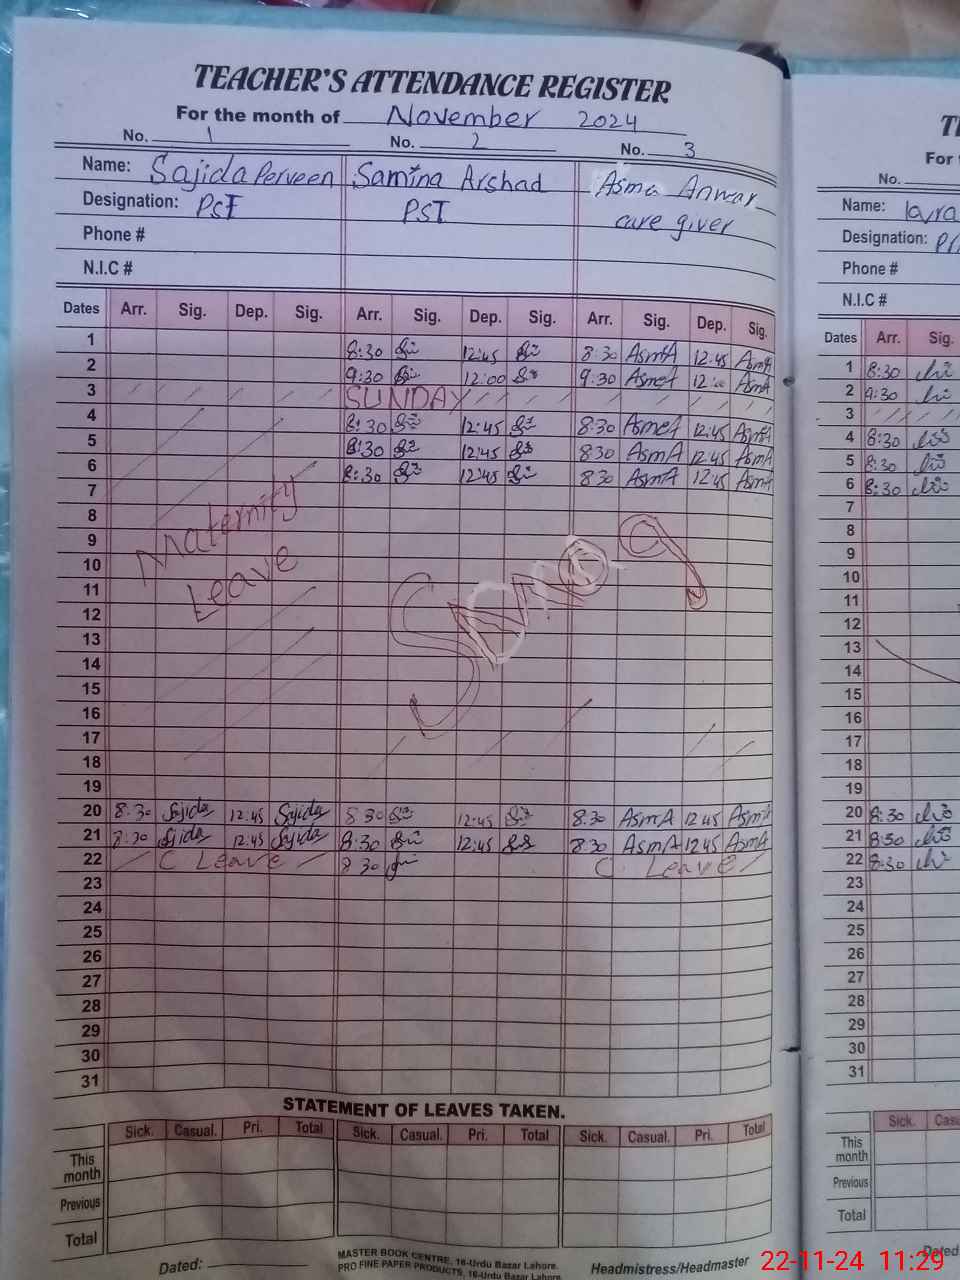 TEACHER'S ATTENDANCE REGISTER
For the month of November 2024
No. 1 No. 2 No. 3
Name: Sajida Perveen Samina Arshad Asma Anwar
Designation: PST PST care giver
Phone #
N.I.C #
Dates Arr. Sig. Dep. Sig. Arr. Sig. Dep. Sig. Arr. Sig. Dep. Sig.
1 8:30 12:45 8:30 AsmA 12:45 AsmA
2 9:30 12:00 9:30 AsmA 12:00 AsmA
3 SUNDAY
4 8:30 12:45 8:30 AsmA 12:45 AsmA
5 8:30 12:45 8:30 AsmA 12:45 AsmA
6 8:30 12:45 8:30 AsmA 12:45 AsmA
7
8
9
10
11
12
13
14
15
16
17
18
19
Maternity
Leave
Smog
20 8:30 Sajida 12:45 Sajida 8:30 12:45 8:30 AsmA 12:45 AsmA
21 8:30 Sajida 12:45 Sajida 8:30 12:45 8:30 AsmA 12:45 AsmA
22 C Leave 8:30 C. Leave
23
24
25
26
27
28
29
30
31
STATEMENT OF LEAVES TAKEN.
Sick. Casual. Pri. Total Sick. Casual. Pri. Total Sick. Casual. Pri. Total
This
month
Previous
Total
Dated:
MASTER BOOK CENTRE, 16-Urdu Bazar Lahore.
PRO FINE PAPER PRODUCTS, 16-Urdu Bazar Lahore.
Headmistress/Headmaster
For
No.
Name:
Designation:
Phone #
N.I.C #
Dates Arr. Sig.
1 8:30
2 9:30
3
4 8:30
5 8:30
6 8:30
7
8
9
10
11
12
13
14
15
16
17
18
19
20 8:30
21 8:30
22 8:30
23
24
25
26
27
28
29
30
31
Sick.
This
month
Previous
Total
Dated
22-11-24 11:29